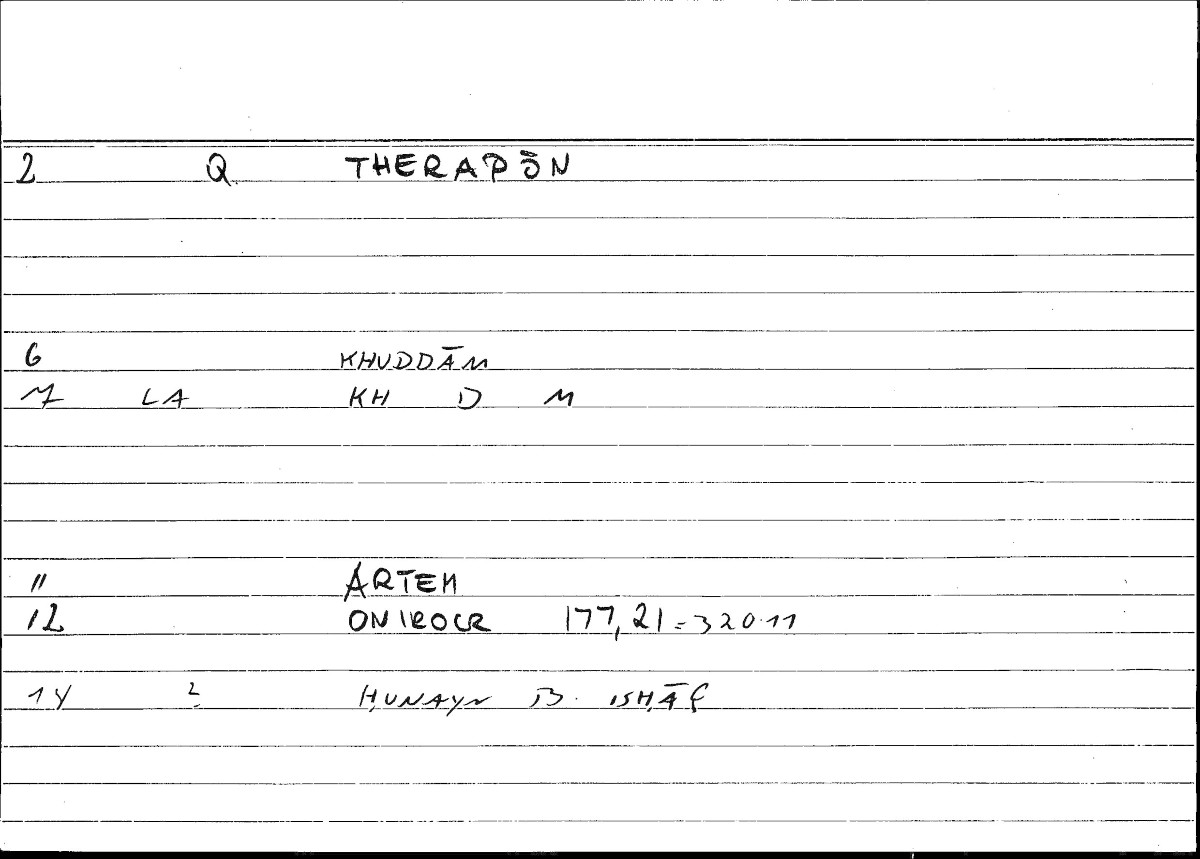 2 Q THERAPŌN
6 KHUDDĀM
7 LA KH D M
11 ARTEM
12 ONIROCR 177,21 = 320.11
14 2 ḤUNAYN B. ISḤĀQ